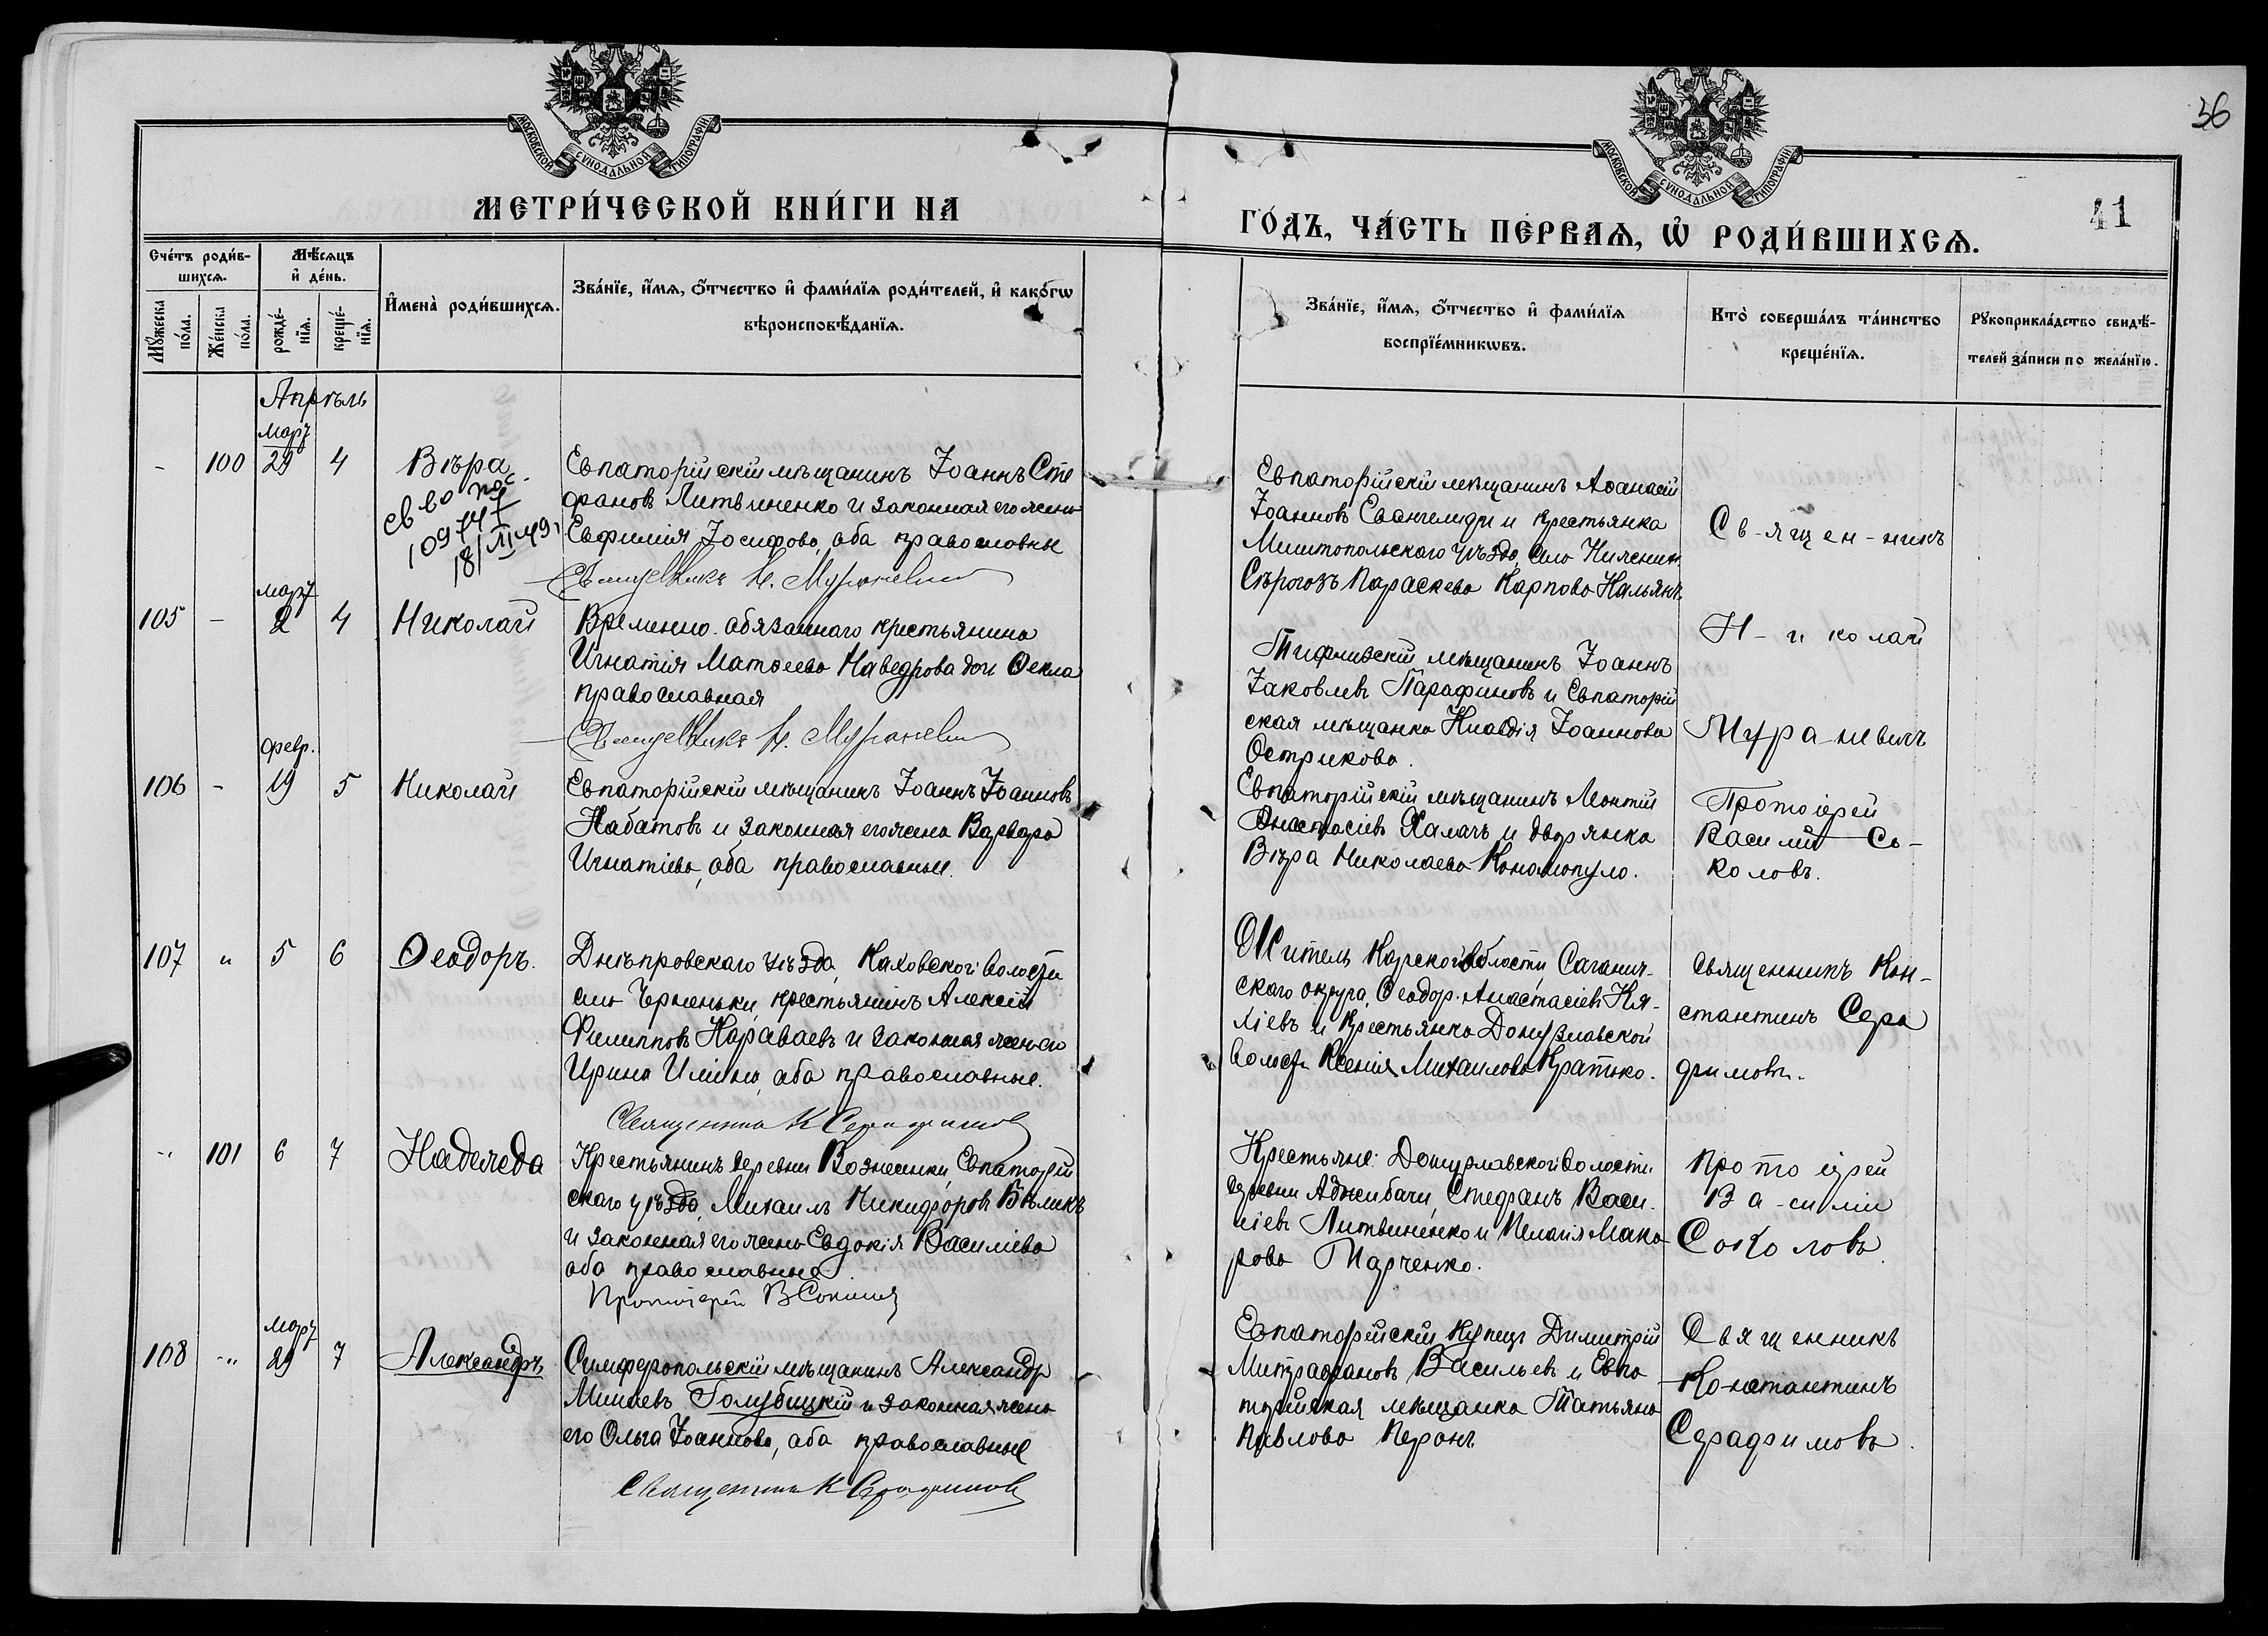 36
МОСКОВСКОЙ СѴНОДАЛЬНОЙ ТИПОГРАФІИ
МОСКОВСКОЙ СѴНОДАЛЬНОЙ ТИПОГРАФІИ
МЕТРИ́ЧЕСКОЙ КНИ́ГИ НА
ГО́ДЪ, ЧА́СТЬ ПЕ́РВАѦ, Ѽ РОДИ́ВШИХСѦ.
41
Сче́тъ роди́в-
шихсѧ.
Мꙋжеска по́ла.
Же́нска по́ла.
Мѣ́сѧцъ
и҆ де́нь.
рожде́-
нїѧ.
креще́-
нїѧ.
И҆мена̀ роди́вшихсѧ.
Зва́нїе, и҆́мѧ, ѻ҆́тчество и҆ фами́лїѧ роди́телей, и҆ како́гѡ
вѣроисповѣ́данїѧ.
Зва́нїе, и҆́мѧ, ѻ҆́тчество и҆ фами́лїѧ
воспрїе́мникѡвъ.
Кто̀ соверша́лъ та́инство
креще́нїѧ.
Рꙋкоприкла́дство свидѣ́-
телей за́писи по жела́нїю.
Апрѣль
Мартъ
- 100 29 4 Вѣра
св во пос.
10974
18/XI 49 г
Евпаторійскій мѣщанинъ Іоаннъ Сте
фановъ Литвиненко и законная его жена
Евфимія Іосифова, оба православные
Священникъ Н. Мураневичъ
Евпаторійскій мѣщанинъ Аѳанасій
Іоанновъ Евангелиди и крестьянка
Мелитопольскаго уѣзда, села Нижнихъ
Сѣрогозъ Параскева Карпова
Св-ящен-никъ
Н-и колай
Мура-невичъ
мартъ
105 - 2 4 Николай
Временно-обязаннаго крестьянина
Игнатія Матѳеева дочь Ѳекла
православная
Священникъ Н. Мураневичъ
Тифлисскій мѣщанинъ Іоаннъ
Іаковлевъ Парафиновъ и Евпаторій
ская мѣщанка Іоаннова
Острикова.
февр.
106 - 19 5 Николай
Евпаторійскій мѣщанинъ Іоаннъ Іоанновъ
Набатовъ и законная его жена Варвара
Игнатіева, оба православные.
Евпаторійскій мѣщанинъ
Анастасіевъ Халачъ и дворянка
Вѣра Николаева Кономопуло.
Протоіерей
Василій Со-
коловъ.
107 „ 5 6 Ѳеодоръ.
Днѣпровскаго уѣзда, Каховской волости
села Черненьки, крестьянинъ Алексій
Филипповъ Караваевъ и законная жена его
Ирина Иліина, оба православные.
Священникъ К Серафимовъ
Житель Карской области,
скаго округа, Ѳеодоръ Анастасіевъ Кя-
ліевъ и крестьянка Донузлавской
волости Ксенія Михаилова Кратко.
Священникъ Кон-
стантинъ Сера
фимовъ.
-„ 101 6 7 Надежда
Крестьянинъ деревни Вознесенки, Евпаторій
скаго уѣзда, Михаилъ Никифоровъ Бѣликъ
и законная его жена Евдокія Василіева
оба православные
Протоіерей В Соколовъ
Крестьяне: Донузлавской волости
деревни Аджибачи, Стефанъ Васи
ліевъ Литвиненко и Пелагія Мака
рова Марченко.
Прото іерей
Ва-силій
Соколовъ
мартъ
108 -„ 29 7 Александръ
Симферопольскій мѣщанинъ Александръ
Голубицкій и законная жена
его Ольга Іоаннова, оба православные
Священникъ К Серафимовъ
Евпаторійскій купецъ Димитрій
Митрофановъ Васильевъ и Евпа
торійская мѣщанка Татьяна
Павлова Перонъ
Священникъ
Константинъ
Серафимовъ.